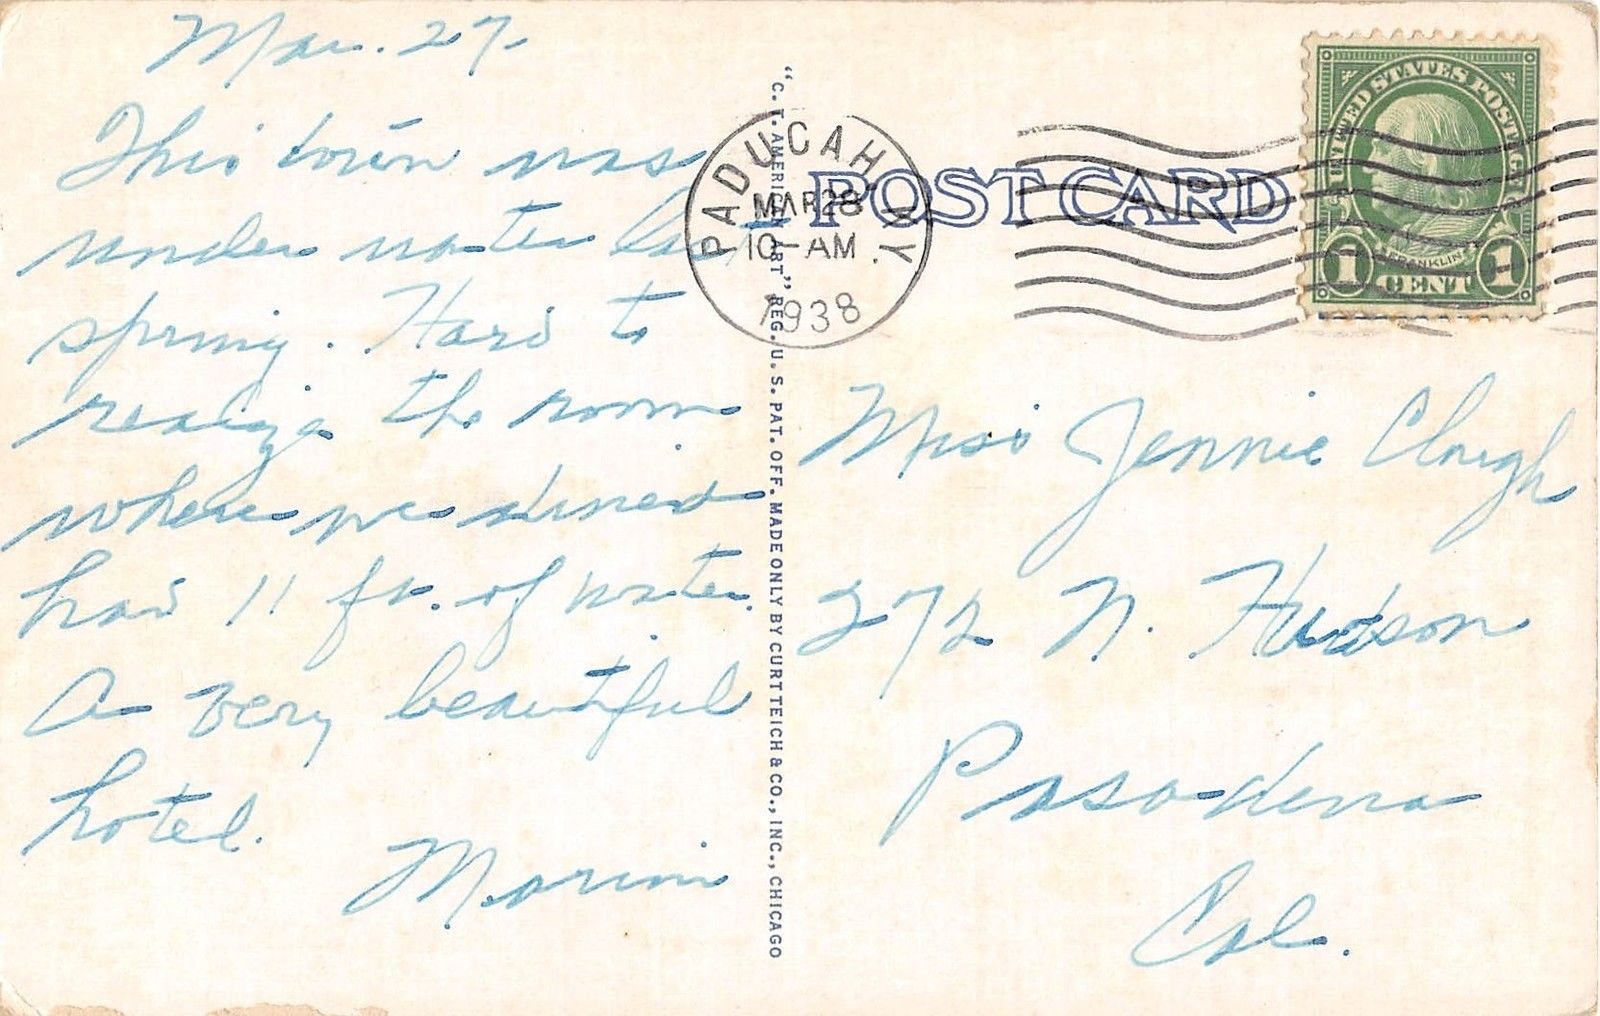 Mar. 27-
This town was
under water last
spring. Hard to
realize the room
where we dined
had 11 ft. of water.
A very beautiful
hotel.
"C.T. AMERICAN ART" REG. U.S. PAT. OFF. MADE ONLY BY CURT TEICH & CO., INC., CHICAGO
PADUCAH KY.
MAR 28
10 - AM
1938
POST CARD
UNITED STATES POSTAGE
FRANKLIN
1 CENT 1
Miss Jennie Clough
272 N. Hudson
Pasadena
Cal.